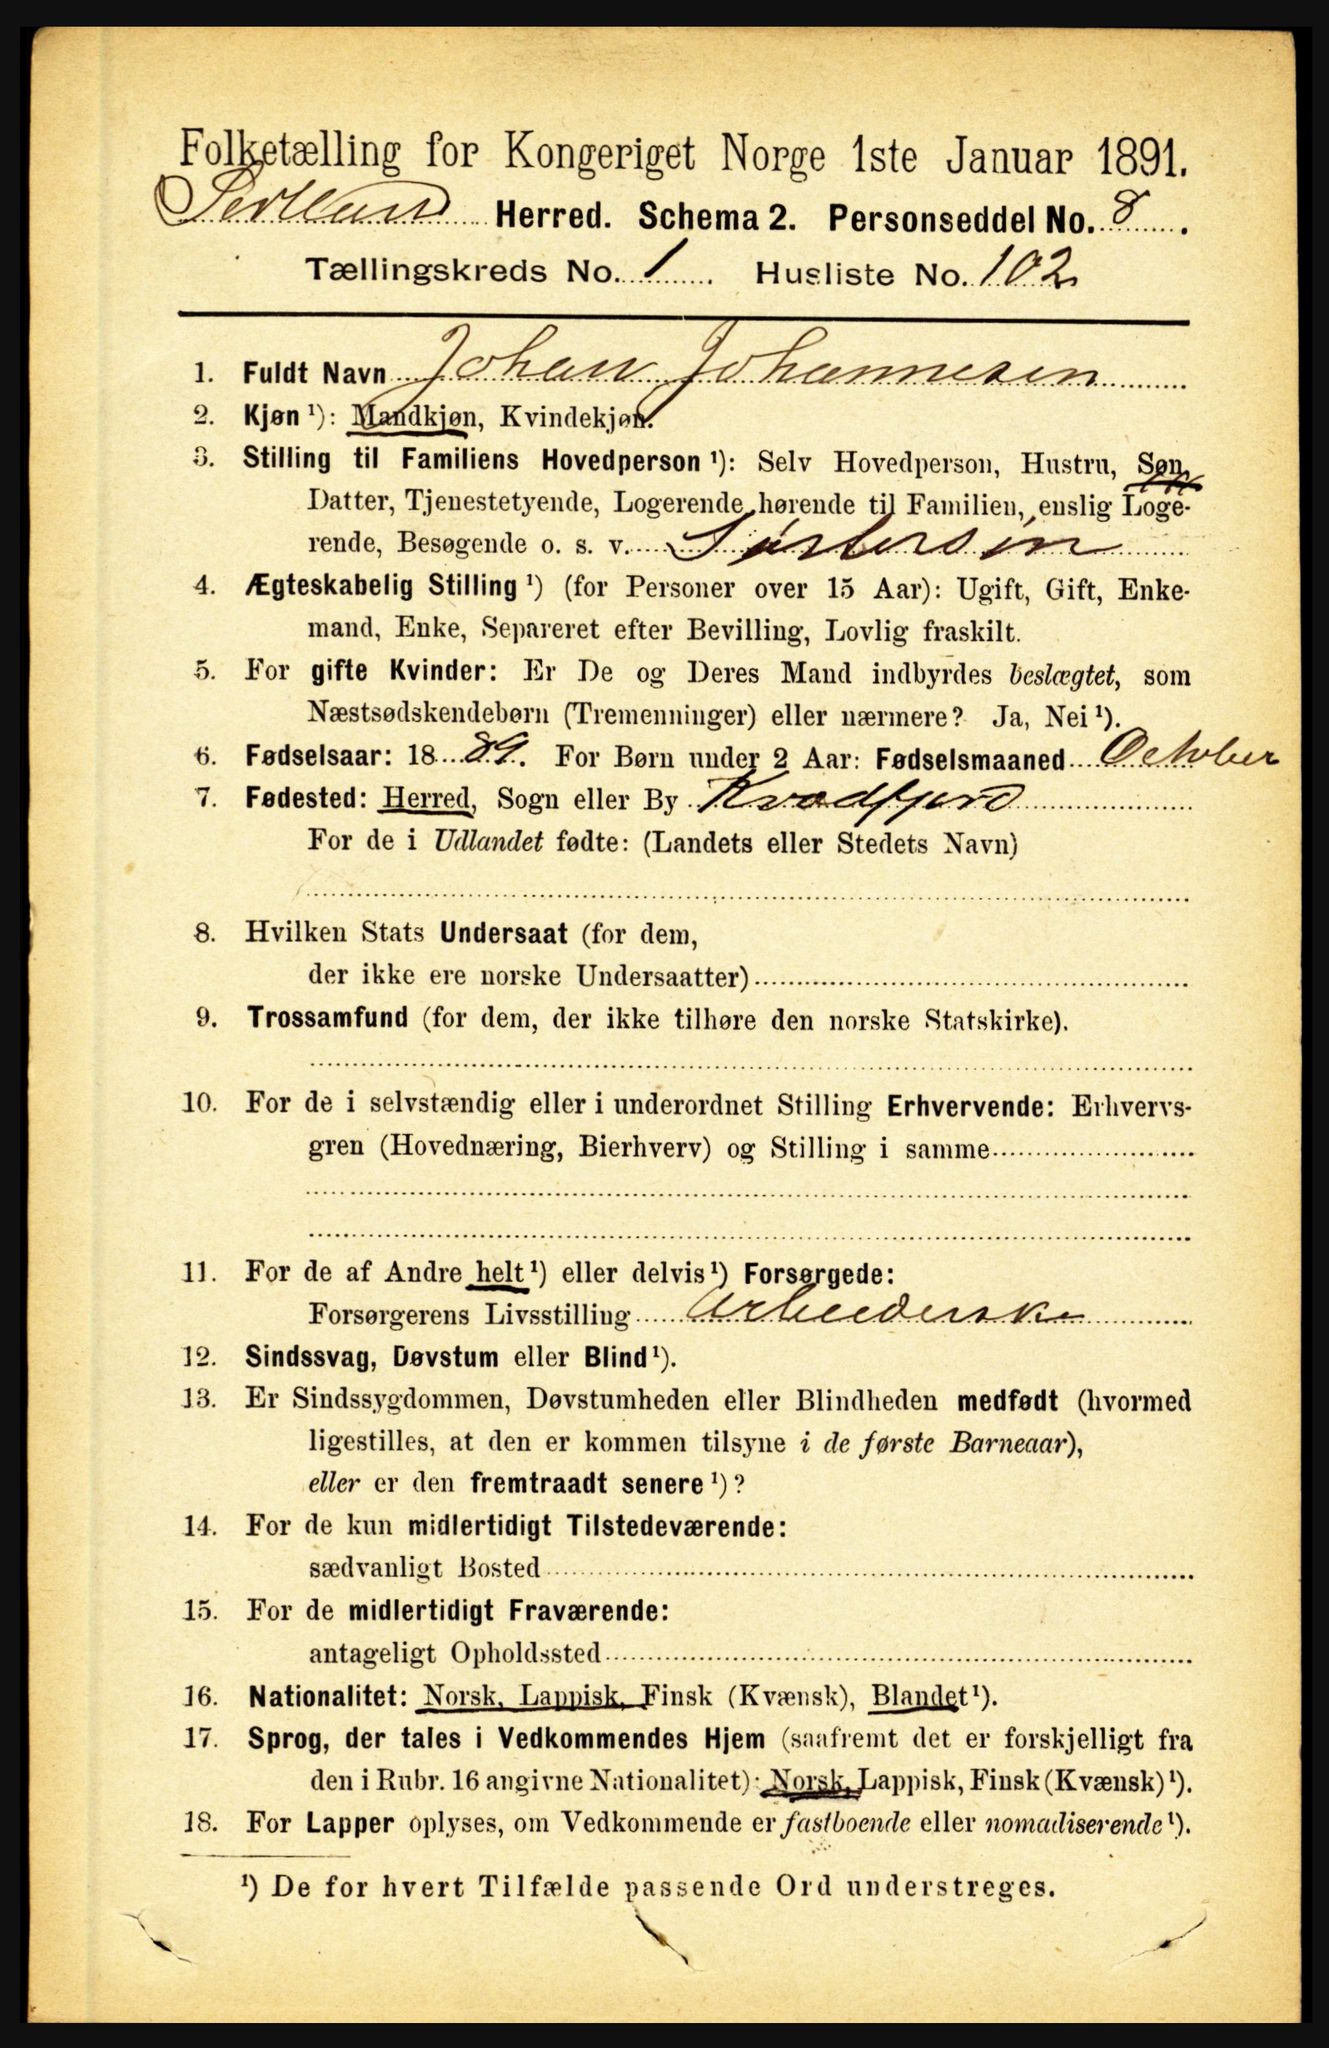 Folketælling for Kongeriget Norge 1ste Januar 1891.
Herred. Schema 2. Personseddel No. 8.
Tællingskreds No. 1. Husliste No. 102
1. Fuldt Navn Johan Johannesen
2. Kjøn ¹): Mandkjøn, Kvindekjøn.
3. Stilling til Familiens Hovedperson ¹): Selv Hovedperson, Hustru, Søn,
Datter, Tjenestetyende, Logerende hørende til Familien, enslig Loge-
rende, Besøgende o. s. v. Søstersøn
4. Ægteskabelig Stilling ¹) (for Personer over 15 Aar): Ugift, Gift, Enke-
mand, Enke, Separeret efter Bevilling, Lovlig fraskilt.
5. For gifte Kvinder: Er De og Deres Mand indbyrdes beslægtet, som
Næstsødskendebørn (Tremenninger) eller nærmere? Ja, Nei ¹).
6. Fødselsaar: 1889. For Børn under 2 Aar: Fødselsmaaned October
7. Fødested: Herred, Sogn eller By Kvædfjord
For de i Udlandet fødte: (Landets eller Stedets Navn)
8. Hvilken Stats Undersaat (for dem,
der ikke ere norske Undersaatter)
9. Trossamfund (for dem, der ikke tilhøre den norske Statskirke).
10. For de i selvstændig eller i underordnet Stilling Erhvervende: Erhvervs-
gren (Hovednæring, Bierhverv) og Stilling i samme
11. For de af Andre helt ¹) eller delvis ¹) Forsørgede:
Forsørgerens Livsstilling Arbeiderske
12. Sindssvag, Døvstum eller Blind ¹).
13. Er Sindssygdommen, Døvstumheden eller Blindheden medfødt (hvormed
ligestilles, at den er kommen tilsyne i de første Barneaar),
eller er den fremtraadt senere ¹)?
14. For de kun midlertidigt Tilstedeværende:
sædvanligt Bosted
15. For de midlertidigt Fraværende:
antageligt Opholdssted
16. Nationalitet: Norsk, Lappisk, Finsk (Kvænsk), Blandet ¹).
17. Sprog, der tales i Vedkommendes Hjem (saafremt det er forskjelligt fra
den i Rubr. 16 angivne Nationalitet): Norsk, Lappisk, Finsk (Kvænsk) ¹).
18. For Lapper oplyses, om Vedkommende er fastboende eller nomadiserende ¹).
¹) De for hvert Tilfælde passende Ord understreges.